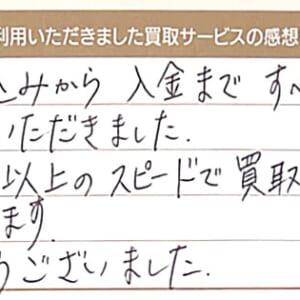 利用いただきました買取サービスの感想
込みから 入金まで すべ
いただきました.
以上の スピードで 買取
ます.
うございました.